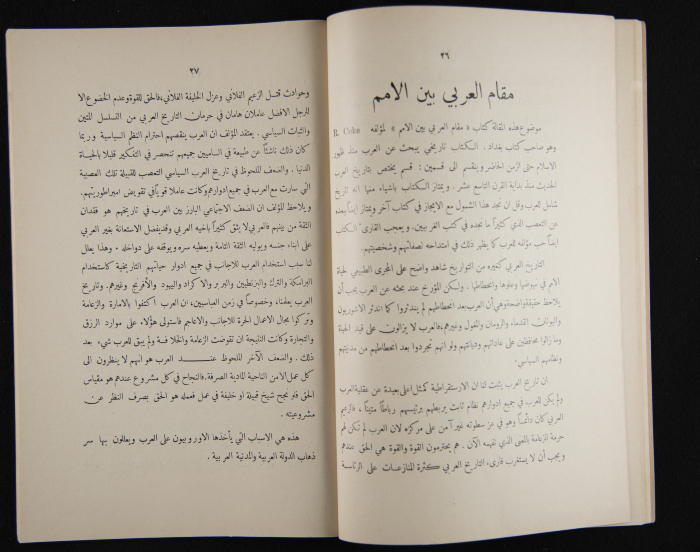 ٢٦
مقام العربي بين الامم
موضوع هذه المقالة كتاب « مقام العربي بين الامم » لمؤلفه R. Coke
وهو صاحب كتاب بغداد . الكتاب تاريخي يبحث عن العرب منذ ظهور
الاسلام حتى الزمن الحاضر وينقسم الى قسمين : قسم يختص بتاريخ العرب
الحديث منذ بداية القرن التاسع عشر . ويمتاز الكتاب باشياء منها انه تاريخ
شامل للعرب وقل ان نجد هذا الشمول مع الايجاز في كتاب آخر ويمتاز ايضاً ببعده
عن التعصب الذي كثيراً ما نجده في كتب الغربيين . ويعجب القارىء الكتاب
ايضاً حب مؤلفه للعرب كما يظهر ذلك في امتداحه لصفاتهم وشخصيتهم .
التاريخ العربي كغيره من التواريخ شاهد واضح على المجرى الطبيعي لحياة
الامم في نهوضها وعلوها وانحطاطها . ولكن المؤرخ عند بحثه عن العرب يجب أن
يلاحظ حقيقة واضحة وهي أن العرب بعد انحطاطهم لم يندثروا كما اندثر الاشوريون
واليونان القدماء والرومان والمغول وغيرهم، فالعرب لا يزالون على قيد الحياة
وما زالوا محافظين على عاداتهم وديانتهم ولو انهم تجردوا بعد انحطاطهم من مدنيتهم
ونظامهم السياسي .
ان تاريخ العرب يثبت لنا ان الارستقراطية كمثل اعلى بعيدة عن عقلية العرب
ولم يكن للعرب في جميع ادوارهم نظام ثابت يربطهم برئيسهم رباطاً متيناً ، فالزعيم
العربي كان دائماً وهو في عز سطوته غير آمن على مركزه لان العرب لم تكن لهم
حرمة للزعامة بالمعنى الذي نفهمه الآن . هم يحترمون القوة والقوة هي الحق عندهم
ويجب أن لا يستغرب قارىء التاريخ العربي كثرة المنازعات على الرئاسة
٢٧
وحوادث قتل الزعيم الفلاني وعزل الخليفة الفلاني، فالحق للقوة وعدم الخضوع الا
للرجل الافضل عاملان هامان في حرمان التاريخ العربي من التسلسل المتين
والثبات السياسي . يعتقد المؤلف ان العرب ينقصهم احترام النظم السياسية وربما
كان ذلك ناشئاً عن طبيعة في الساميين جميعهم تنحصر في التفكير قليلا بالحياة
الدنيا . والضعف الملحوظ في تاريخ العرب السياسي التعصب للقبيلة تلك العصبية
التي سارت مع العرب في جميع ادوارهم وكانت عاملا قوياً في تقويض امبراطوريتهم.
ويلاحظ المؤلف ان الضعف الاجتماعي البارز بين العرب في تاريخهم هو فقدان
الثقة من بينهم فالعربي لا يثق كثيراً باخيه العربي وقد يفضل الاستعانة بغير العربي
على ابناء جنسه ويوليه الثقة التامة ويعطيه سره ويوقفه على دواخله . وهذا يعلل
لنا سبب استخدام العرب للاجانب في جميع ادوار حياتهم التاريخية كاستخدام
البرامكة والترك والبزنطيين والبربر والاكراد واليهود والأفرنج وغيرهم. وتاريخ
العرب يعلمنا، وخصوصاً في زمن العباسيين، ان العرب اكتفوا بالامارة والزعامة
وتركوا مجال الاعمال الحرة للاجانب والاعاجم فاستولى هؤلاء على موارد الرزق
والتجارة وكانت النتيجة ان تقوضت الزعامة والخلافة ولم يبق للعرب شيء بعد
ذلك . والضعف الآخر الملحوظ عند العرب هو انهم لا ينظرون الى
كل عمل الا من الناحية المادية الصرفة. فالنجاح في كل مشروع عندهم هو مقياس
الحق فلو نجح شيخ قبيلة او خليفة في عمل فعمله هو الحق بصرف النظر عن
مشروعيته .
هذه هي الاسباب التي يأخذها الاوروبيون على العرب ويعللون بها سر
ذهاب الدولة العربية والمدنية العربية .